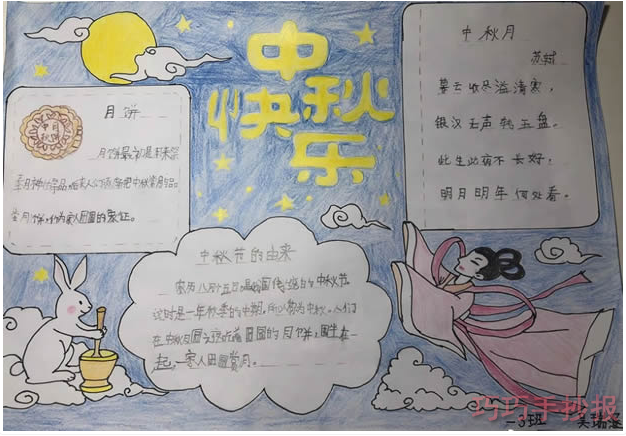 中秋快乐
中秋月
苏轼
暮云收尽溢清寒，
银汉无声转玉盘。
此生此夜不长好，
明月明年何处看。
月饼
月饼最初是用来祭
月神的祭品，后来人们
月饼，作为家人团圆的象征。
中秋节的由来
农历八月十五日是我国传统的中秋节。
这时是一年秋季的中期，所以称为中秋。人们
在中秋月圆之夜吃着团圆的月饼，围坐在一
起，一家人团圆赏月。
一3班 吴瑞
巧巧手抄报